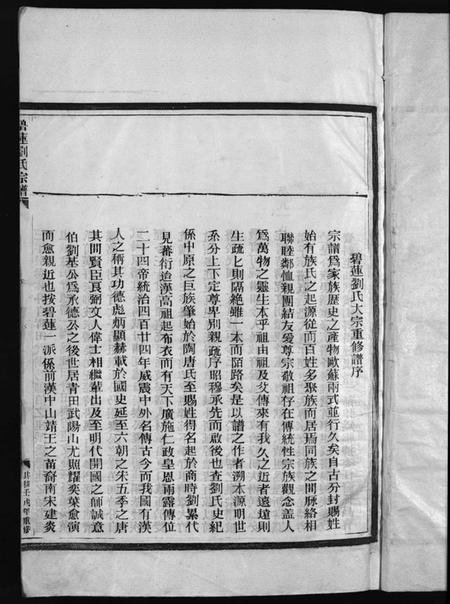 碧蓮劉氏大宗重修譜序
宗譜爲家族歷史之產物歐蘇兩式並行久矣自古分封賜姓
始有族氏之起源從而百姓多聚族而居焉同族之間脉絡相
聯睦鄰恤親團結友愛尊宗敬祖存在傳統性宗族觀念蓋人
爲萬物之靈生本乎祖由祖及父傳來有我久之近者遠遠則
生疏匕則隔絶雖一本而陌路矣是以譜之作者溯本源明世
系分上下定尊卑別親疏序昭穆承先而啟後也查劉氏史紀
係中原之巨族肇始於陶唐氏至賜姓得名起於商時劉累代
見蕃衍迨漢高祖起布衣而有天下廣施仁政皇恩雨露傳位
二十四帝統治四百廿四年威震中外名傳古今而我國有漢
人之稱其功德彪炳顯赫載於國史延至六朝之宋五季之唐
其間賢臣良剪文人偉士相繼輩出及至明代開國之師誠意
伯劉基公爲承德公之後世居青田武陽山尤照耀奕葉愈演
而愈親近也按碧蓮一派係前漢中山靖王之苗裔南宋建炎
碧蓮劉氏宗譜
壬戌年重修